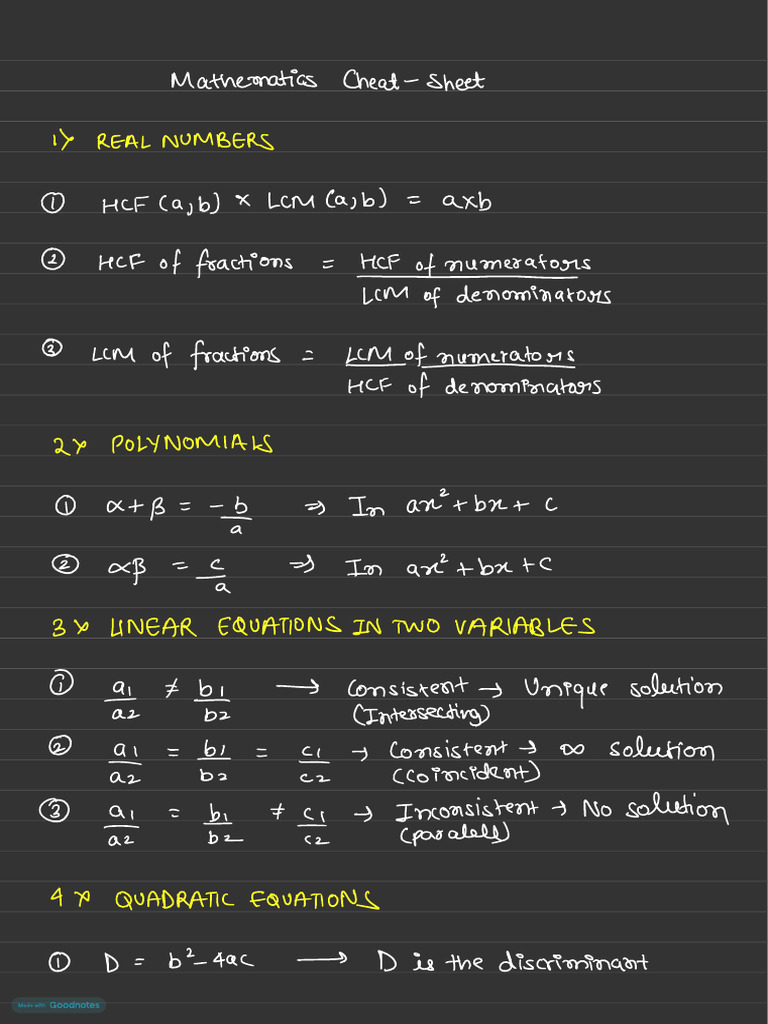 Mathematics Cheat-Sheet
1) REAL NUMBERS
① HCF (a,b) × LCM (a,b) = a×b
② HCF of fractions = HCF of numerators
LCM of denominators
③ LCM of fractions = LCM of numerators
HCF of denominators
2) POLYNOMIALS
① α + β = -b/a ⇒ In ax² + bx + c
② αβ = c/a ⇒ In ax² + bx + c
3) LINEAR EQUATIONS IN TWO VARIABLES
① a1/a2 ≠ b1/b2 → Consistent → Unique solution
(Intersecting)
② a1/a2 = b1/b2 = c1/c2 → Consistent → ∞ solution
(coincident)
③ a1/a2 = b1/b2 ≠ c1/c2 → Inconsistent → No solution
(paralell)
4) QUADRATIC EQUATIONS
① D = b² - 4ac → D is the discriminant
Made with Goodnotes